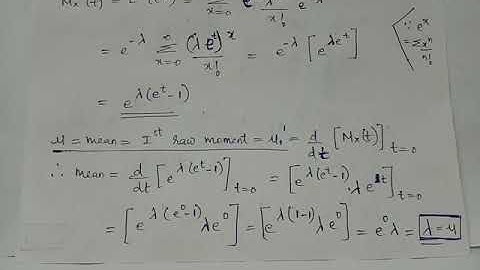 Mx(t) = Σ x=0 e^-λ λ^x / x!
= e^-λ Σ x=0 ∞ (λe^t)^x / x! = e^-λ [e^λe^t]
∵ e^x = Σ x^n / n!
= e^λ(e^t-1)
μ = mean = I^st raw moment = μ₁' = d/dt [Mx(t)] t=0
∴ mean = d/dt [e^λ(e^t-1)] t=0 = [e^λ(e^t-1) . λ e^t] t=0
= [e^λ(e^0-1) λe^0] = [e^λ(1-1) λ e^0] = e^0 λ = λ = μ